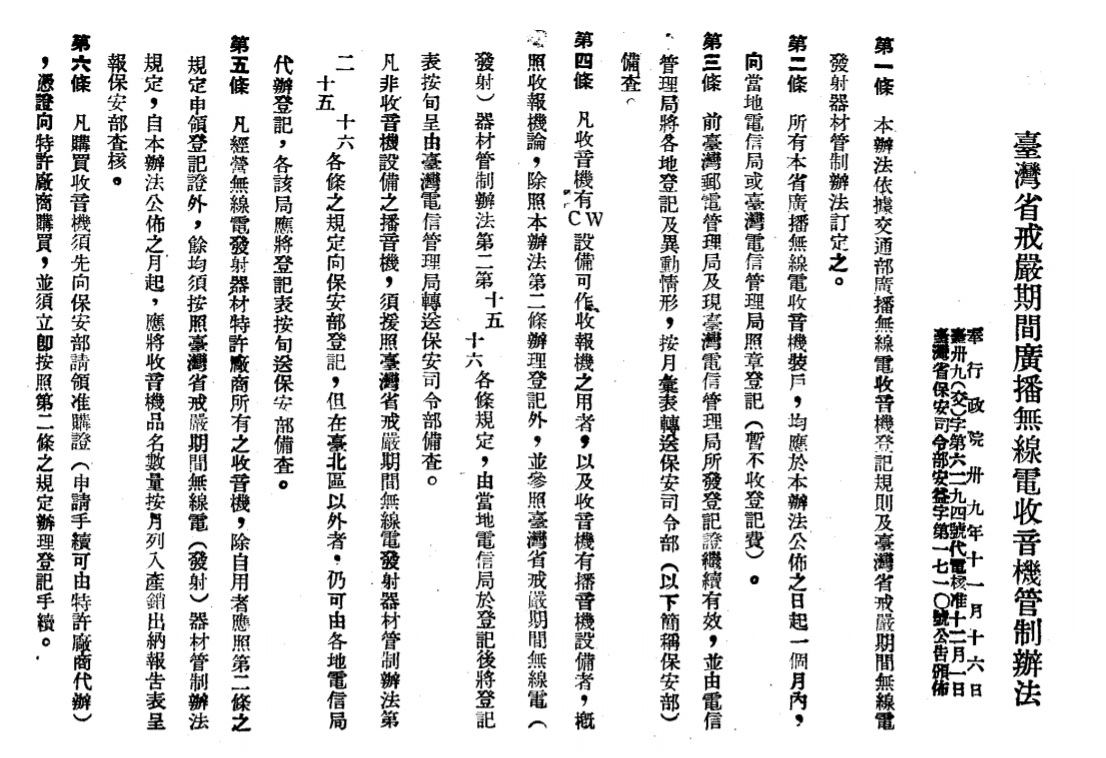 臺灣省戒嚴期間廣播無線電收音機管制辦法
奉行政院卅九年十一月十六日
臺卅九(交)字第六一九四號代電核准十二月一日
臺灣省保安司令部安益字第一七一〇號公告頒佈
第一條　本辦法依據交通部廣播無線電收音機登記規則及臺灣省戒嚴期間無線電
發射器材管制辦法訂定之。
第二條　所有本省廣播無線電收音機裝戶，均應於本辦法公佈之日起一個月內，
向當地電信局或臺灣電信管理局照章登記（暫不收登記費）。
第三條　前臺灣郵電管理局及現臺灣電信管理局所發登記證繼續有效，並由電信
管理局將各地登記及異動情形，按月彙表轉送保安司令部（以下簡稱保安部）
備查。
第四條　凡收音機有CW設備可作收報機之用者，以及收音機有播音機設備者，概
照收報機論，除照本辦法第二條辦理登記外，並參照臺灣省戒嚴期間無線電（
發射）器材管制辦法第二第十五十六各條規定，由當地電信局於登記後將登記
表按旬呈由臺灣電信管理局轉送保安司令部備查。
凡非收音機設備之播音機，須援照臺灣省戒嚴期間無線電發射器材管制辦法第
二十五十六各條之規定向保安部登記，但在臺北區以外者，仍可由各地電信局
代辦登記，各該局應將登記表按旬送保安部備查。
第五條　凡經營無線電發射器材特許廠商所有之收音機，除自用者應照第二條之
規定申領登記證外，餘均須按照臺灣省戒嚴期間無線電（發射）器材管制辦法
規定，自本辦法公佈之月起，應將收音機品名數量按月列入產銷出納報告表呈
報保安部查核。
第六條　凡購買收音機須先向保安部請領准購證（申請手續可由特許廠商代辦）
，憑證向特許廠商購買，並須立卽按照第二條之規定辦理登記手續。